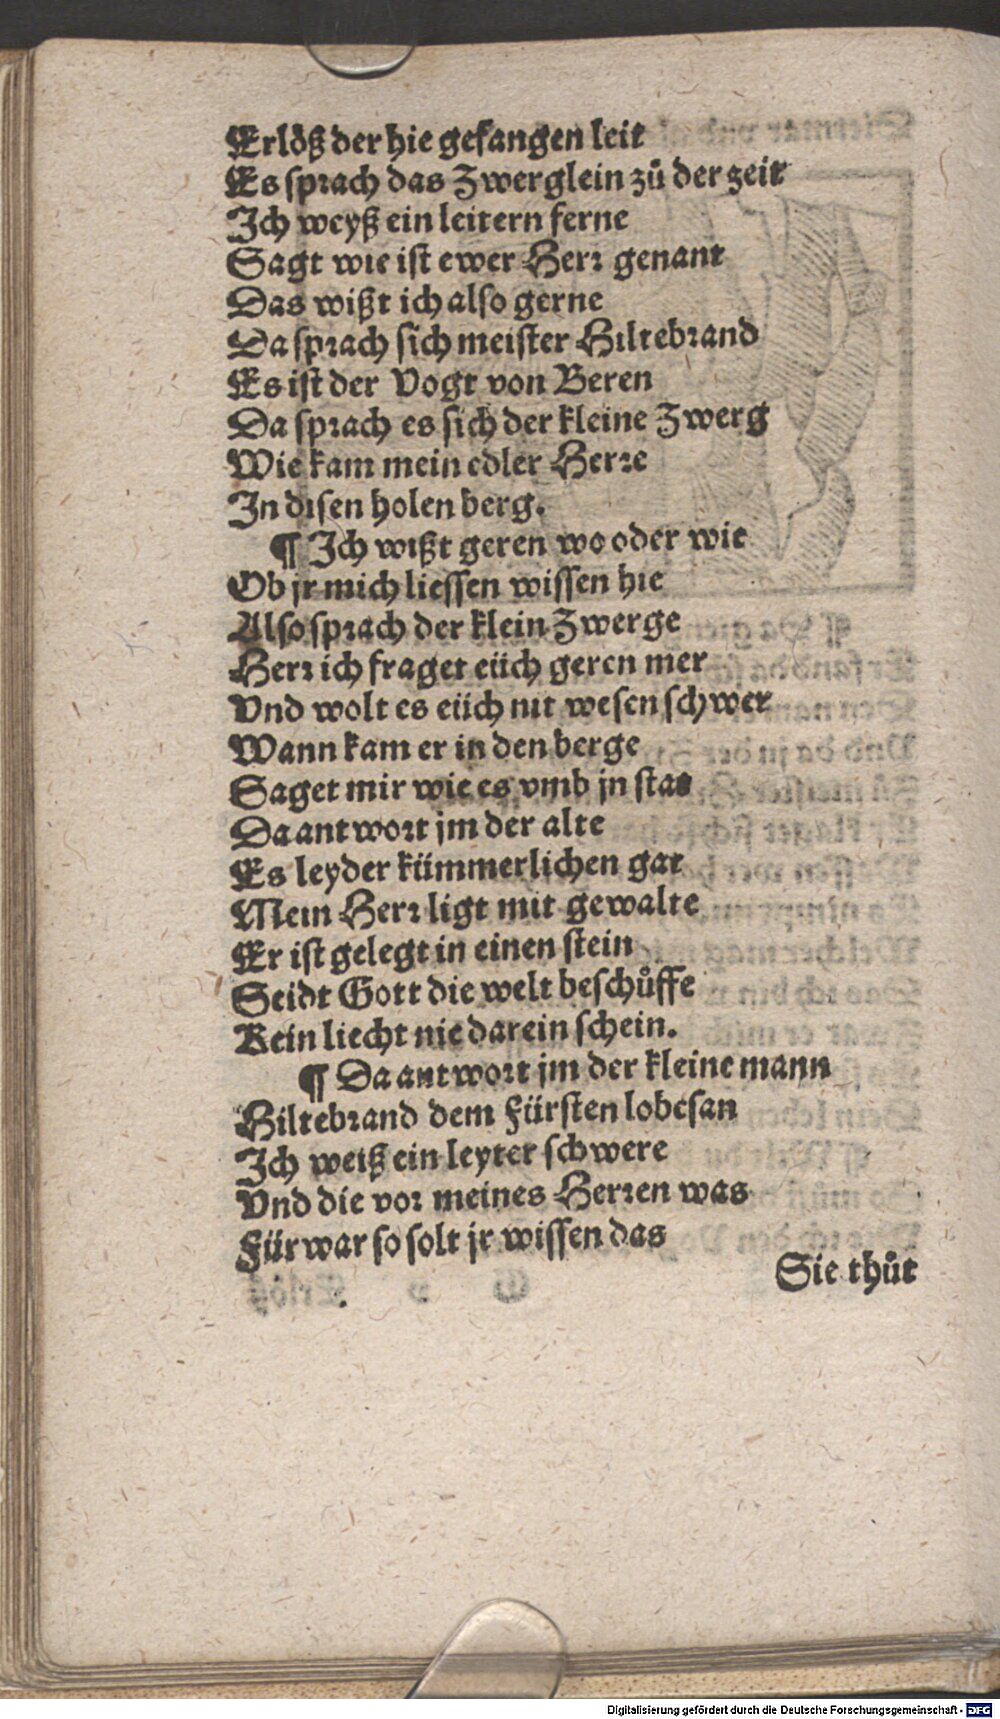 Erlöß der hie gefangen leit
Es sprach das Zwerglein zů der zeit
Ich weyß ein leitern ferne
Sagt wie ist ewer Herr genant
Das wißt ich also gerne
Da sprach sich meister Hiltebrand
Es ist der Vogt von Beren
Da sprach es sich der kleine Zwerg
Wie kam mein edler Herre
In disen holen berg.
¶ Ich wißt geren wo oder wie
Ob jr mich liessen wissen hie
Also sprach der klein Zwerge
Herr ich fraget eüch geren mer
Vnd wolt es eüch nit wesen schwer
Wann kam er in den berge
Saget mir wie es vmb jn stas
Da antwort jm der alte
Es leyder kümmerlichen gar
Mein Herr ligt mit gewalte
Er ist gelegt in einen stein
Seidt Gott die welt beschůffe
Kein liecht nie darein schein.
¶ Da antwort jm der kleine mann
Hiltebrand dem Fürsten lobesan
Ich weiß ein leyter schwere
Vnd die vor meines Herren was
Fürwar so solt jr wissen das
Sie thůt
Digitalisierung gefördert durch die Deutsche Forschungsgemeinschaft - DFG